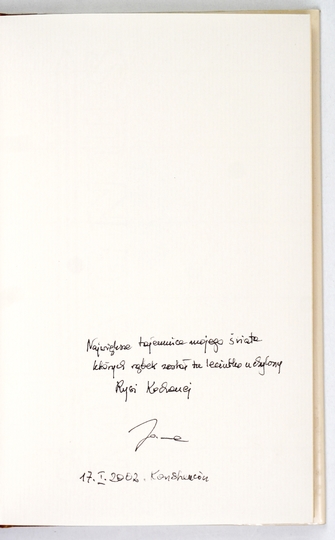 Największe tajemnice mojego świata
których rąbek został tu leciutko uchylony
Rysi Kochanej
17. I. 2002. Konstancin